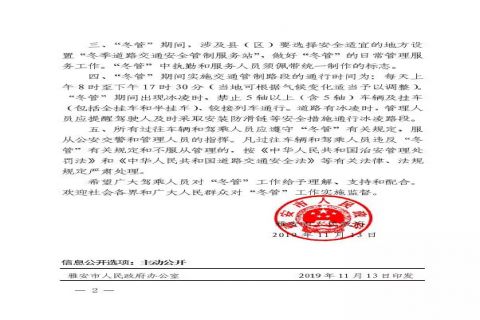 三、“冬管”期间，涉及县（区）要选择安全适宜的地方设
置“冬季道路交通安全管制服务站”，做好“冬管”的日常管理服
务工作。“冬管”中执勤和服务人员须佩带统一制作的标志。
四、“冬管”期间实施交通管制路段的通行时间为：每天上
午8时至下午17时30分（当地可根据气候变化适当予以调整）。
“冬管”期间出现冰凌时，禁止5轴以上（含5轴）车辆及挂车
（包括全挂车和半挂车）、铰接列车通行。道路有冰凌时，管理人
员应提醒驾驶人及时采取安装防滑链等安全措施通行冰凌路段。
五、所有过往车辆和驾乘人员应遵守“冬管”有关规定，服
从公安交警和管理人员的指挥。凡过往车辆和驾乘人员违反“冬
管”有关规定和不服从管理的，按《中华人民共和国治安管理处
罚法》和《中华人民共和国道路交通安全法》等有关法律、法规
规定严肃处理。
希望广大驾乘人员对“冬管”工作给予理解、支持和配合。
欢迎社会各界和广大人民群众对“冬管”工作实施监督。
雅安市人民政府
2019年11月13日
信息公开选项：主动公开
雅安市人民政府办公室 2019年11月13日印发
— 2 —